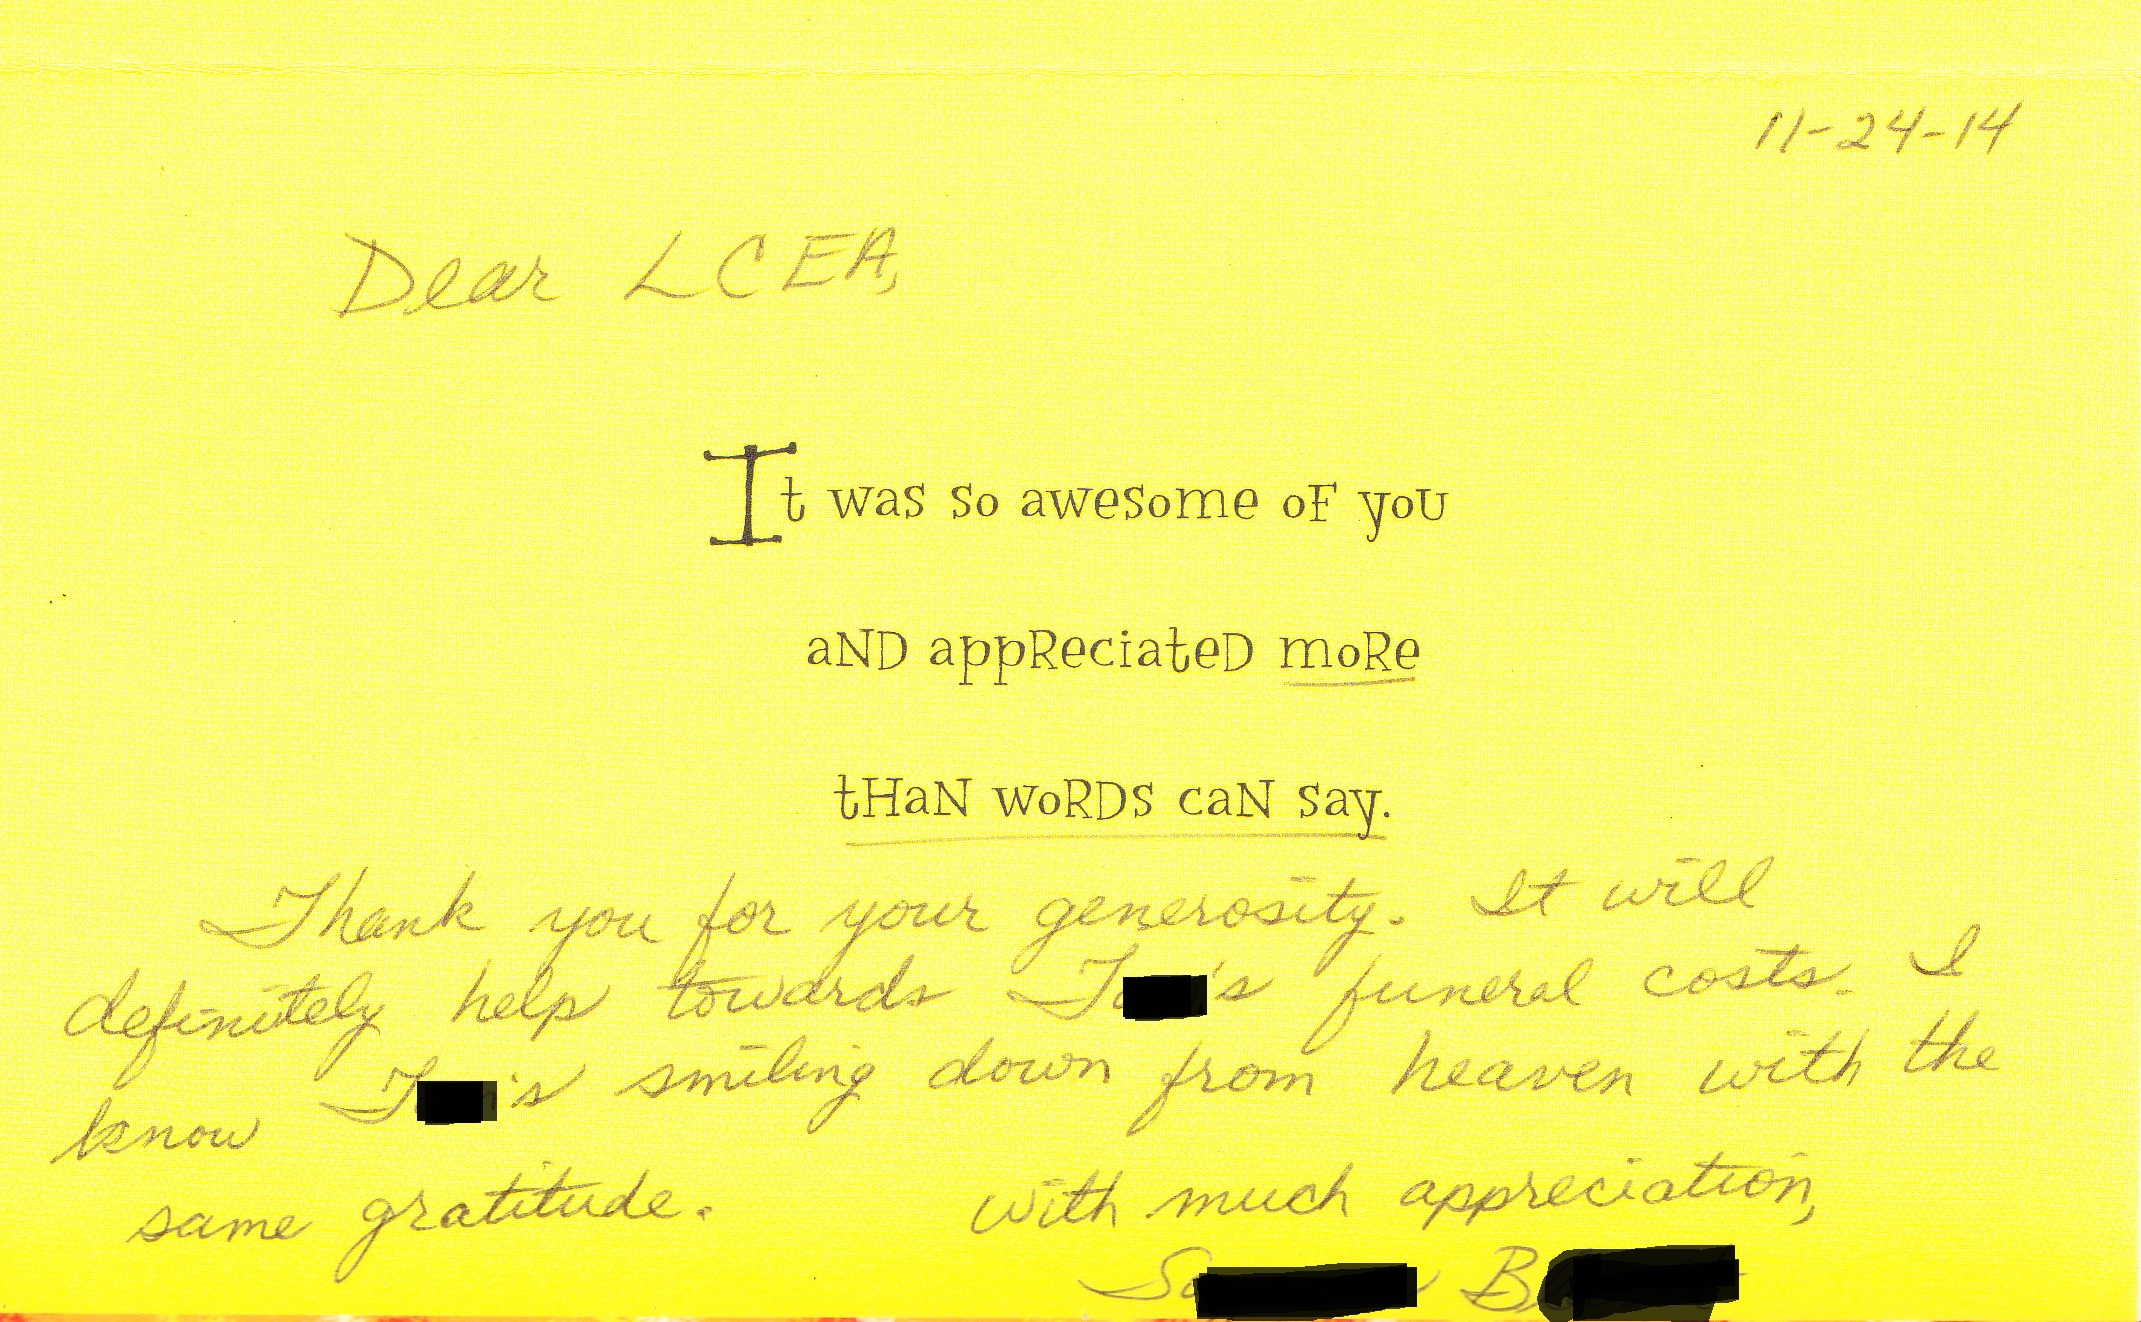 11-24-14
Dear LCEA,
It was so awesome of you
and appreciated more
than words can say.
Thank you for your generosity. It will
definitely help towards 's funeral costs. I
know 's smiling down from heaven with the
same gratitude. With much appreciation,